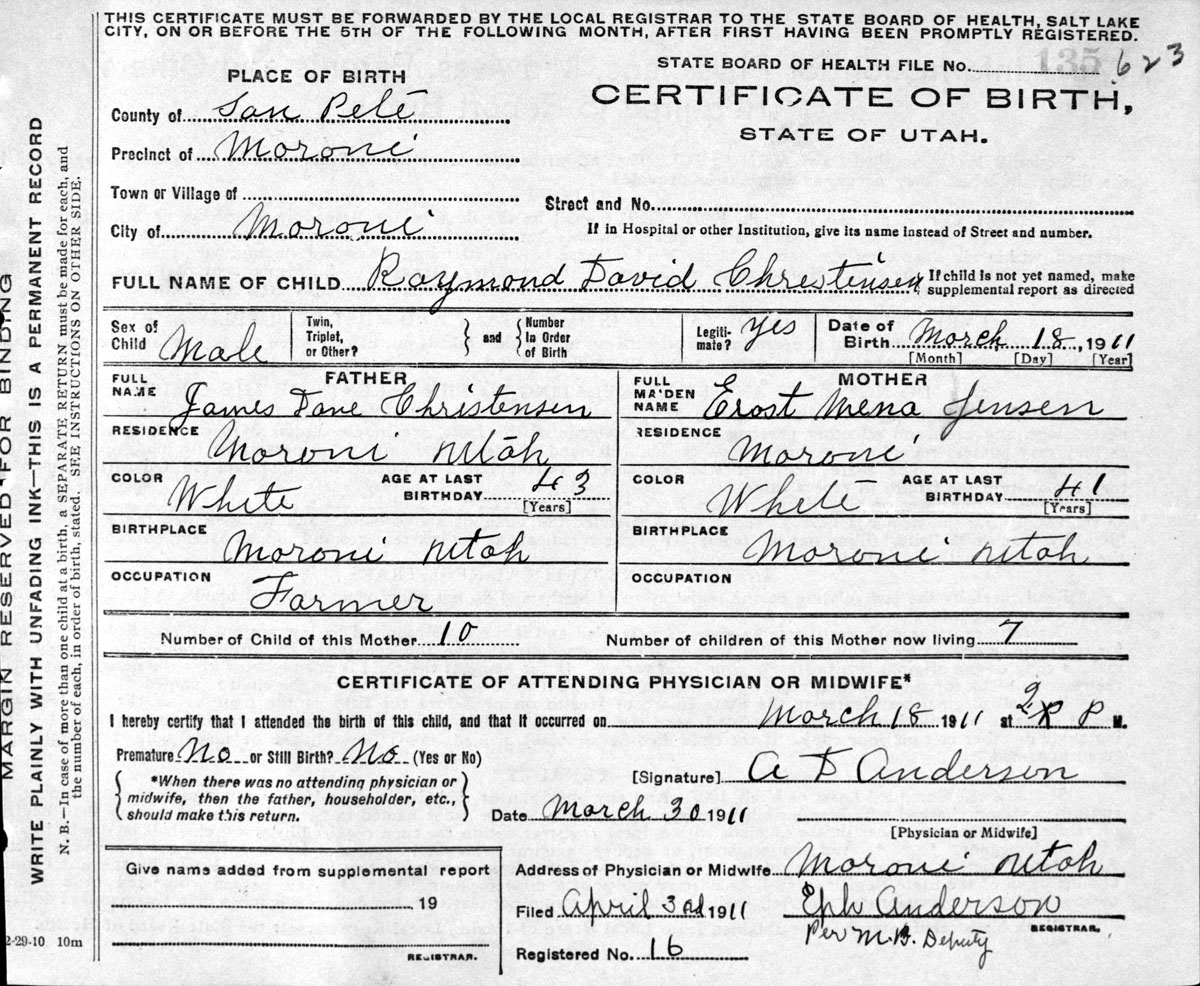 THIS CERTIFICATE MUST BE FORWARDED BY THE LOCAL REGISTRAR TO THE STATE BOARD OF HEALTH, SALT LAKE
CITY, ON OR BEFORE THE 5TH OF THE FOLLOWING MONTH, AFTER FIRST HAVING BEEN PROMPTLY REGISTERED.
MARGIN RESERVED FOR BINDING
WRITE PLAINLY WITH UNFADING INK—THIS IS A PERMANENT RECORD
N. B.—In case of more than one child at a birth, a SEPARATE RETURN must be made for each, and
the number of each, in order of birth, stated. SEE INSTRUCTIONS ON OTHER SIDE.
PLACE OF BIRTH
STATE BOARD OF HEALTH FILE NO. 135 623
CERTIFICATE OF BIRTH,
STATE OF UTAH.
County of San Pete
Precinct of Moroni
Town or Village of
Street and No.
City of Moroni
If in Hospital or other Institution, give its name instead of Street and number.
FULL NAME OF CHILD Raymond David Christensen
If child is not yet named, make
supplemental report as directed
Sex of
Child Male
Twin,
Triplet,
or Other?
and
Number
In Order
of Birth
Legiti-
mate? Yes
Date of
Birth March 18, 1911
[Month] [Day] [Year]
FATHER
FULL
NAME James Dane Christensen
MOTHER
FULL
MAIDEN
NAME Erost Mena Jensen
RESIDENCE Moroni Utah
RESIDENCE Moroni
COLOR White
AGE AT LAST
BIRTHDAY 43
[Years]
COLOR White
AGE AT LAST
BIRTHDAY 41
[Years]
BIRTHPLACE Moroni Utah
BIRTHPLACE Moroni Utah
OCCUPATION Farmer
OCCUPATION
Number of Child of this Mother 10
Number of children of this Mother now living 7
CERTIFICATE OF ATTENDING PHYSICIAN OR MIDWIFE*
I hereby certify that I attended the birth of this child, and that it occurred on March 18 1911 at 2 P M.
Premature No or Still Birth? No (Yes or No)
*When there was no attending physician or
midwife, then the father, householder, etc.,
should make this return.
[Signature] A D Anderson
Date March 30 1911
[Physician or Midwife]
Give name added from supplemental report
19
REGISTRAR.
Address of Physician or Midwife Moroni Utah
Filed April 3rd 1911
Eph Anderson
REGISTRAR.
Per M.B. Deputy
Registered No. 16
2-29-10 10m